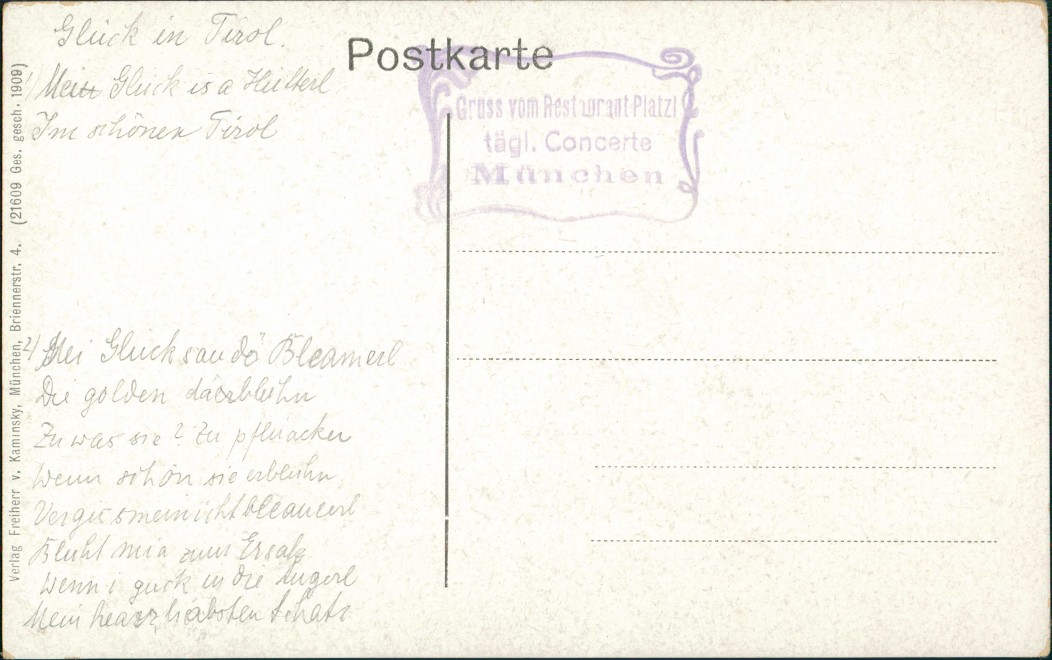 Glück in Tirol.
1) Mein Glück is a Hütterl
Im schönen Tirol
2) Mei Glück san dö Bleamerl
Die golden
Zu was sie ? Zu pflucken
Wenn schön sie erblühn
Vergissmeinichtbleamerl
Blüht mia zum Ersatz
Wenn i guck in die Äugerl
Mein Schatz
Postkarte
Gruss vom Restaurant Platzl
tägl. Concerte
München
Verlag Freiherr v. Kaminsky, München, Briennerstr. 4. (21609 Ges. gesch. 1909)